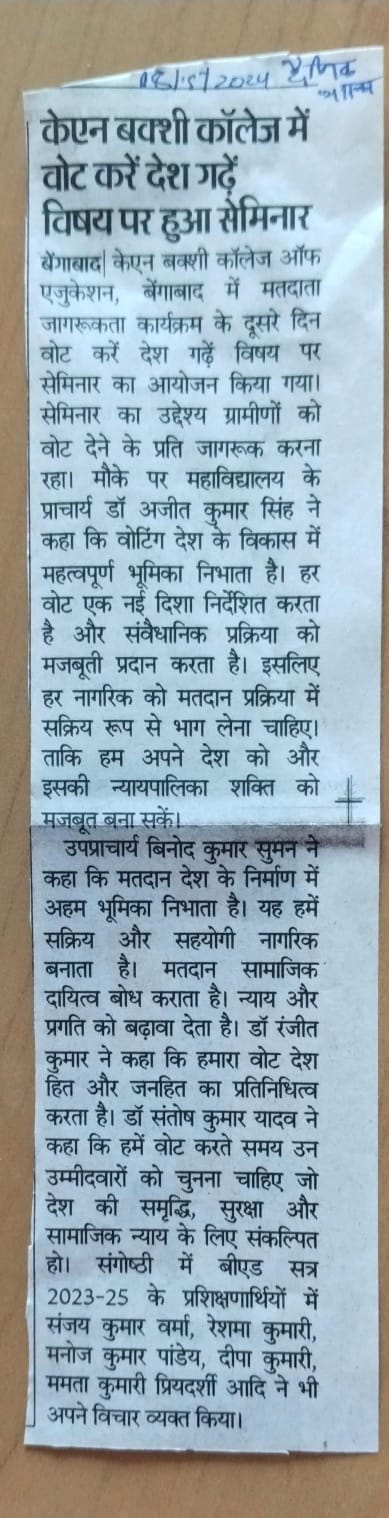 18/5/2024 दैनिक
केएन बक्शी कॉलेज में
वोट करें देश गढ़ें
विषय पर हुआ सेमिनार
बेंगाबाद| केएन बक्शी कॉलेज ऑफ
एजुकेशन, बेंगाबाद में मतदाता
जागरूकता कार्यक्रम के दूसरे दिन
वोट करें देश गढ़ें विषय पर
सेमिनार का आयोजन किया गया।
सेमिनार का उद्देश्य ग्रामीणों को
वोट देने के प्रति जागरूक करना
रहा। मौके पर महाविद्यालय के
प्राचार्य डॉ अजीत कुमार सिंह ने
कहा कि वोटिंग देश के विकास में
महत्वपूर्ण भूमिका निभाता है। हर
वोट एक नई दिशा निर्देशित करता
है और संवैधानिक प्रक्रिया को
मजबूती प्रदान करता है। इसलिए
हर नागरिक को मतदान प्रक्रिया में
सक्रिय रूप से भाग लेना चाहिए।
ताकि हम अपने देश को और
इसकी न्यायपालिका शक्ति को
मजबूत बना सकें।
उपप्राचार्य बिनोद कुमार सुमन ने
कहा कि मतदान देश के निर्माण में
अहम भूमिका निभाता है। यह हमें
सक्रिय और सहयोगी नागरिक
बनाता है। मतदान सामाजिक
दायित्व बोध कराता है। न्याय और
प्रगति को बढ़ावा देता है। डॉ रंजीत
कुमार ने कहा कि हमारा वोट देश
हित और जनहित का प्रतिनिधित्व
करता है। डॉ संतोष कुमार यादव ने
कहा कि हमें वोट करते समय उन
उम्मीदवारों को चुनना चाहिए जो
देश की समृद्धि, सुरक्षा और
सामाजिक न्याय के लिए संकल्पित
हो। संगोष्ठी में बीएड सत्र
2023-25 के प्रशिक्षणार्थियों में
संजय कुमार वर्मा, रेशमा कुमारी,
मनोज कुमार पांडेय, दीपा कुमारी,
ममता कुमारी प्रियदर्शी आदि ने भी
अपने विचार व्यक्त किया।